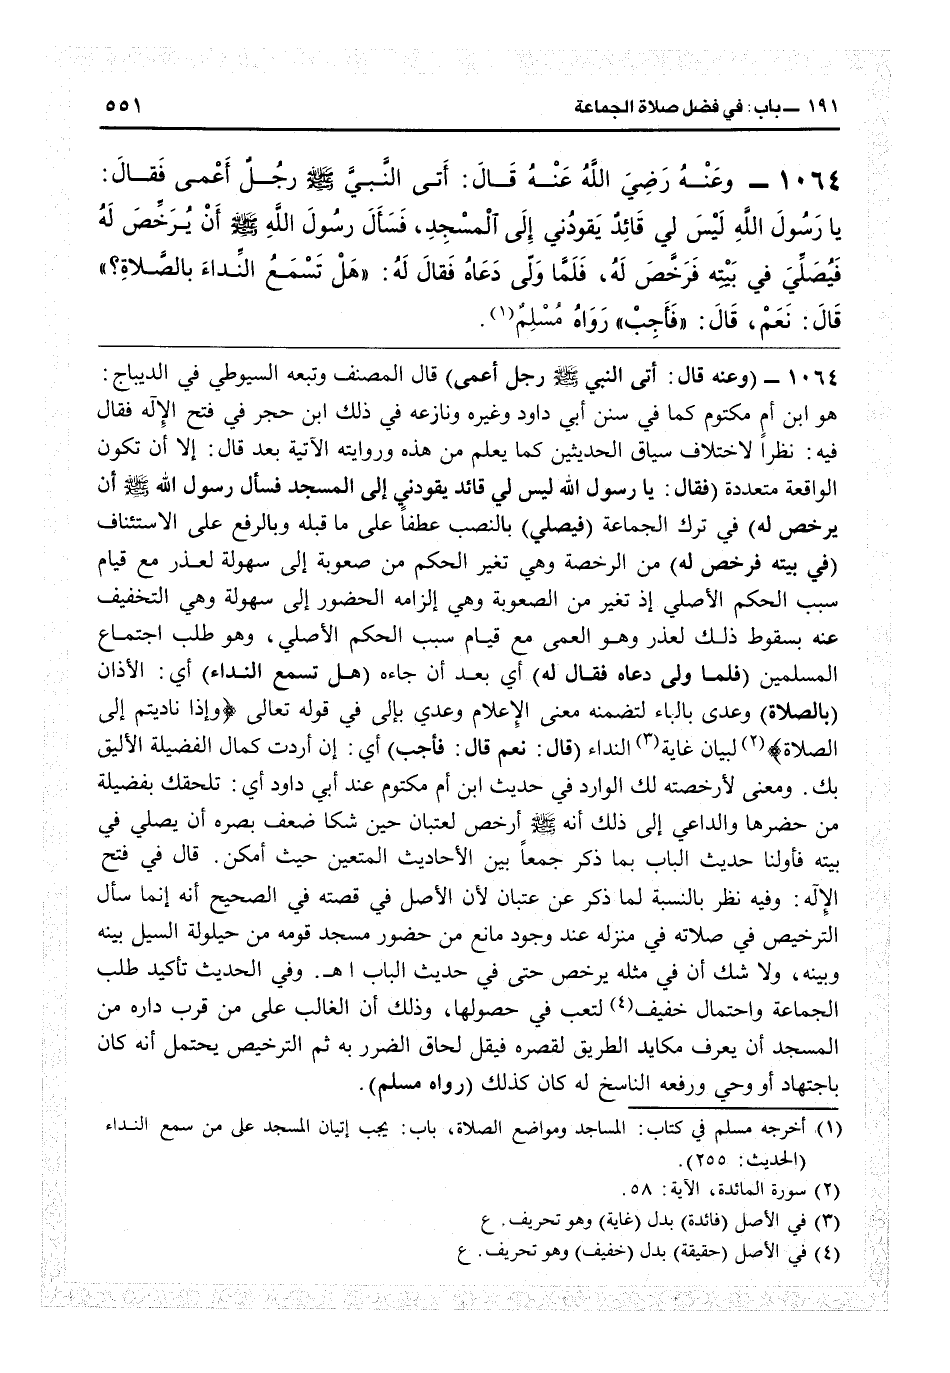 ١٩١ ــ باب: في فضل صلاة الجماعة ٥٥١
١٠٦٤ ــ وعَنْـهُ رَضِيَ اللَّهُ عَنْـهُ قَـالَ: أَتـى النَّـبيَّ ﷺ رجُـلٌ أَعْمـى فَقـالَ:
يا رَسُولَ اللَّهِ لَيْسَ لي قَائِدٌ يَقودُني إِلَى ٱلْمَسْجِدِ، فَسَأَلَ رسُولَ اللَّهِ ﷺ أَنْ يُـرَخِّصَ لَهُ
فَيُصَلِّيَ في بَيْتِه فَرَخَّصَ لَهُ، فَلَمَّا وَلّى دَعَاهُ فَقالَ لَهُ: «هَلْ تَسْمَعُ النِّداءَ بالصَّلاةِ؟»
قَالَ: نَعَمْ، قَالَ: «فَأَجِبْ» رَوَاهُ مُسْلِمٌ(١).
١٠٦٤ ــ (وعنه قال: أتى النبي ﷺ رجل أعمى) قال المصنف وتبعه السيوطي في الديباج:
هو ابن أم مكتوم كما في سنن أبي داود وغيره ونازعه في ذلك ابن حجر في فتح الإِله فقال
فيه: نظراً لاختلاف سياق الحديثين كما يعلم من هذه وروايته الآتية بعد قال: إلا أن تكون
الواقعة متعددة (فقال: يا رسول الله ليس لي قائد يقودني إلى المسجد فسأل رسول الله ﷺ أن
يرخص له) في ترك الجماعة (فيصلي) بالنصب عطفاً على ما قبله وبالرفع على الاستئناف
(في بيته فرخص له) من الرخصة وهي تغير الحكم من صعوبة إلى سهولة لعـذر مع قيام
سبب الحكم الأصلي إذ تغير من الصعوبة وهي إلزامه الحضور إلى سهولة وهي التخفيف
عنه بسقوط ذلـك لعذر وهـو العمى مع قيـام سبب الحكم الأصلي، وهو طلب اجتمـاع
المسلمين (فلمـا ولى دعاه فقـال له) أي بعـد أن جاءه (هـل تسمع النـداء) أي: الأذان
(بالصلاة) وعدى بالباء لتضمنه معنى الإعلام وعدي بإلى في قوله تعالى ﴿وإذا ناديتم إلى
الصلاة﴾(٢) لبيان غاية(٣) النداء (قال: نعم قال: فأجب) أي: إن أردت كمال الفضيلة الأليق
بك. ومعنى لأرخصته لك الوارد في حديث ابن أم مكتوم عند أبي داود أي: تلحقك بفضيلة
من حضرها والداعي إلى ذلك أنه ﷺ أرخص لعتبان حين شكا ضعف بصره أن يصلي في
بيته فأولنا حديث الباب بما ذكر جمعاً بين الأحاديث المتعين حيث أمكن. قال في فتح
الإِله: وفيه نظر بالنسبة لما ذكر عن عتبان لأن الأصل في قصته في الصحيح أنه إنما سأل
الترخيص في صلاته في منزله عند وجود مانع من حضور مسجد قومه من حيلولة السيل بينه
وبينه، ولا شك أن في مثله يرخص حتى في حديث الباب ا هـ. وفي الحديث تأكيد طلب
الجماعة واحتمال خفيف(٤) لتعب في حصولها، وذلك أن الغالب على من قرب داره من
المسجد أن يعرف مكايد الطريق لقصره فيقل لحاق الضرر به ثم الترخيص يحتمل أنه كان
باجتهاد أو وحي ورفعه الناسخ له كان كذلك (رواه مسلم).
(١) أخرجه مسلم في كتاب: المساجد ومواضع الصلاة، باب: يجب إتيان المسجد على من سمع النـداء
(الحديث: ٢٥٥).
(٢) سورة المائدة، الآية: ٥٨.
(٣) في الأصل (فائدة) بدل (غاية) وهو تحريف. ع
(٤) في الأصل (حقيقة) بدل (خفيف) وهو تحريف. ع